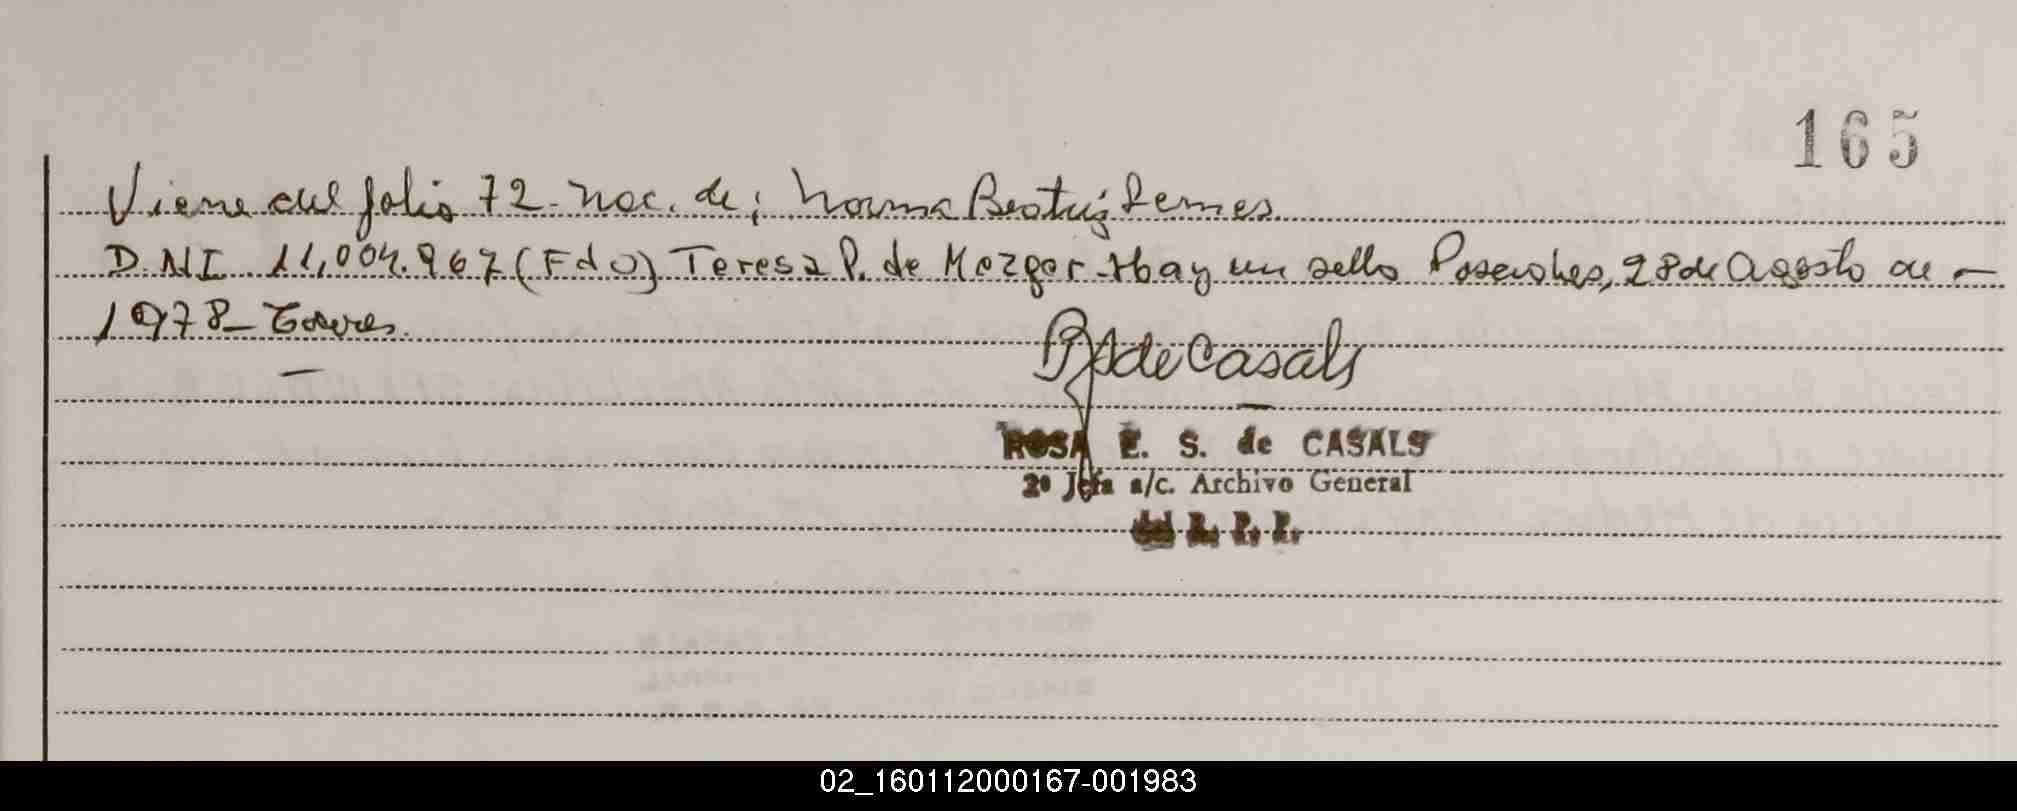 165
Viene del folio 72. Nac. de; Norma Beatriz
D.NI. 11,004.967 (Fdo) Teresa P. de Mezger. Hay un sello Posadas, 28 de Agosto de -
1978_ Torres.
_
R S de Casals
ROSA E. S. de CASALS
2º Jefa a/c. Archivo General
del R. P. P.
02_160112000167-001983